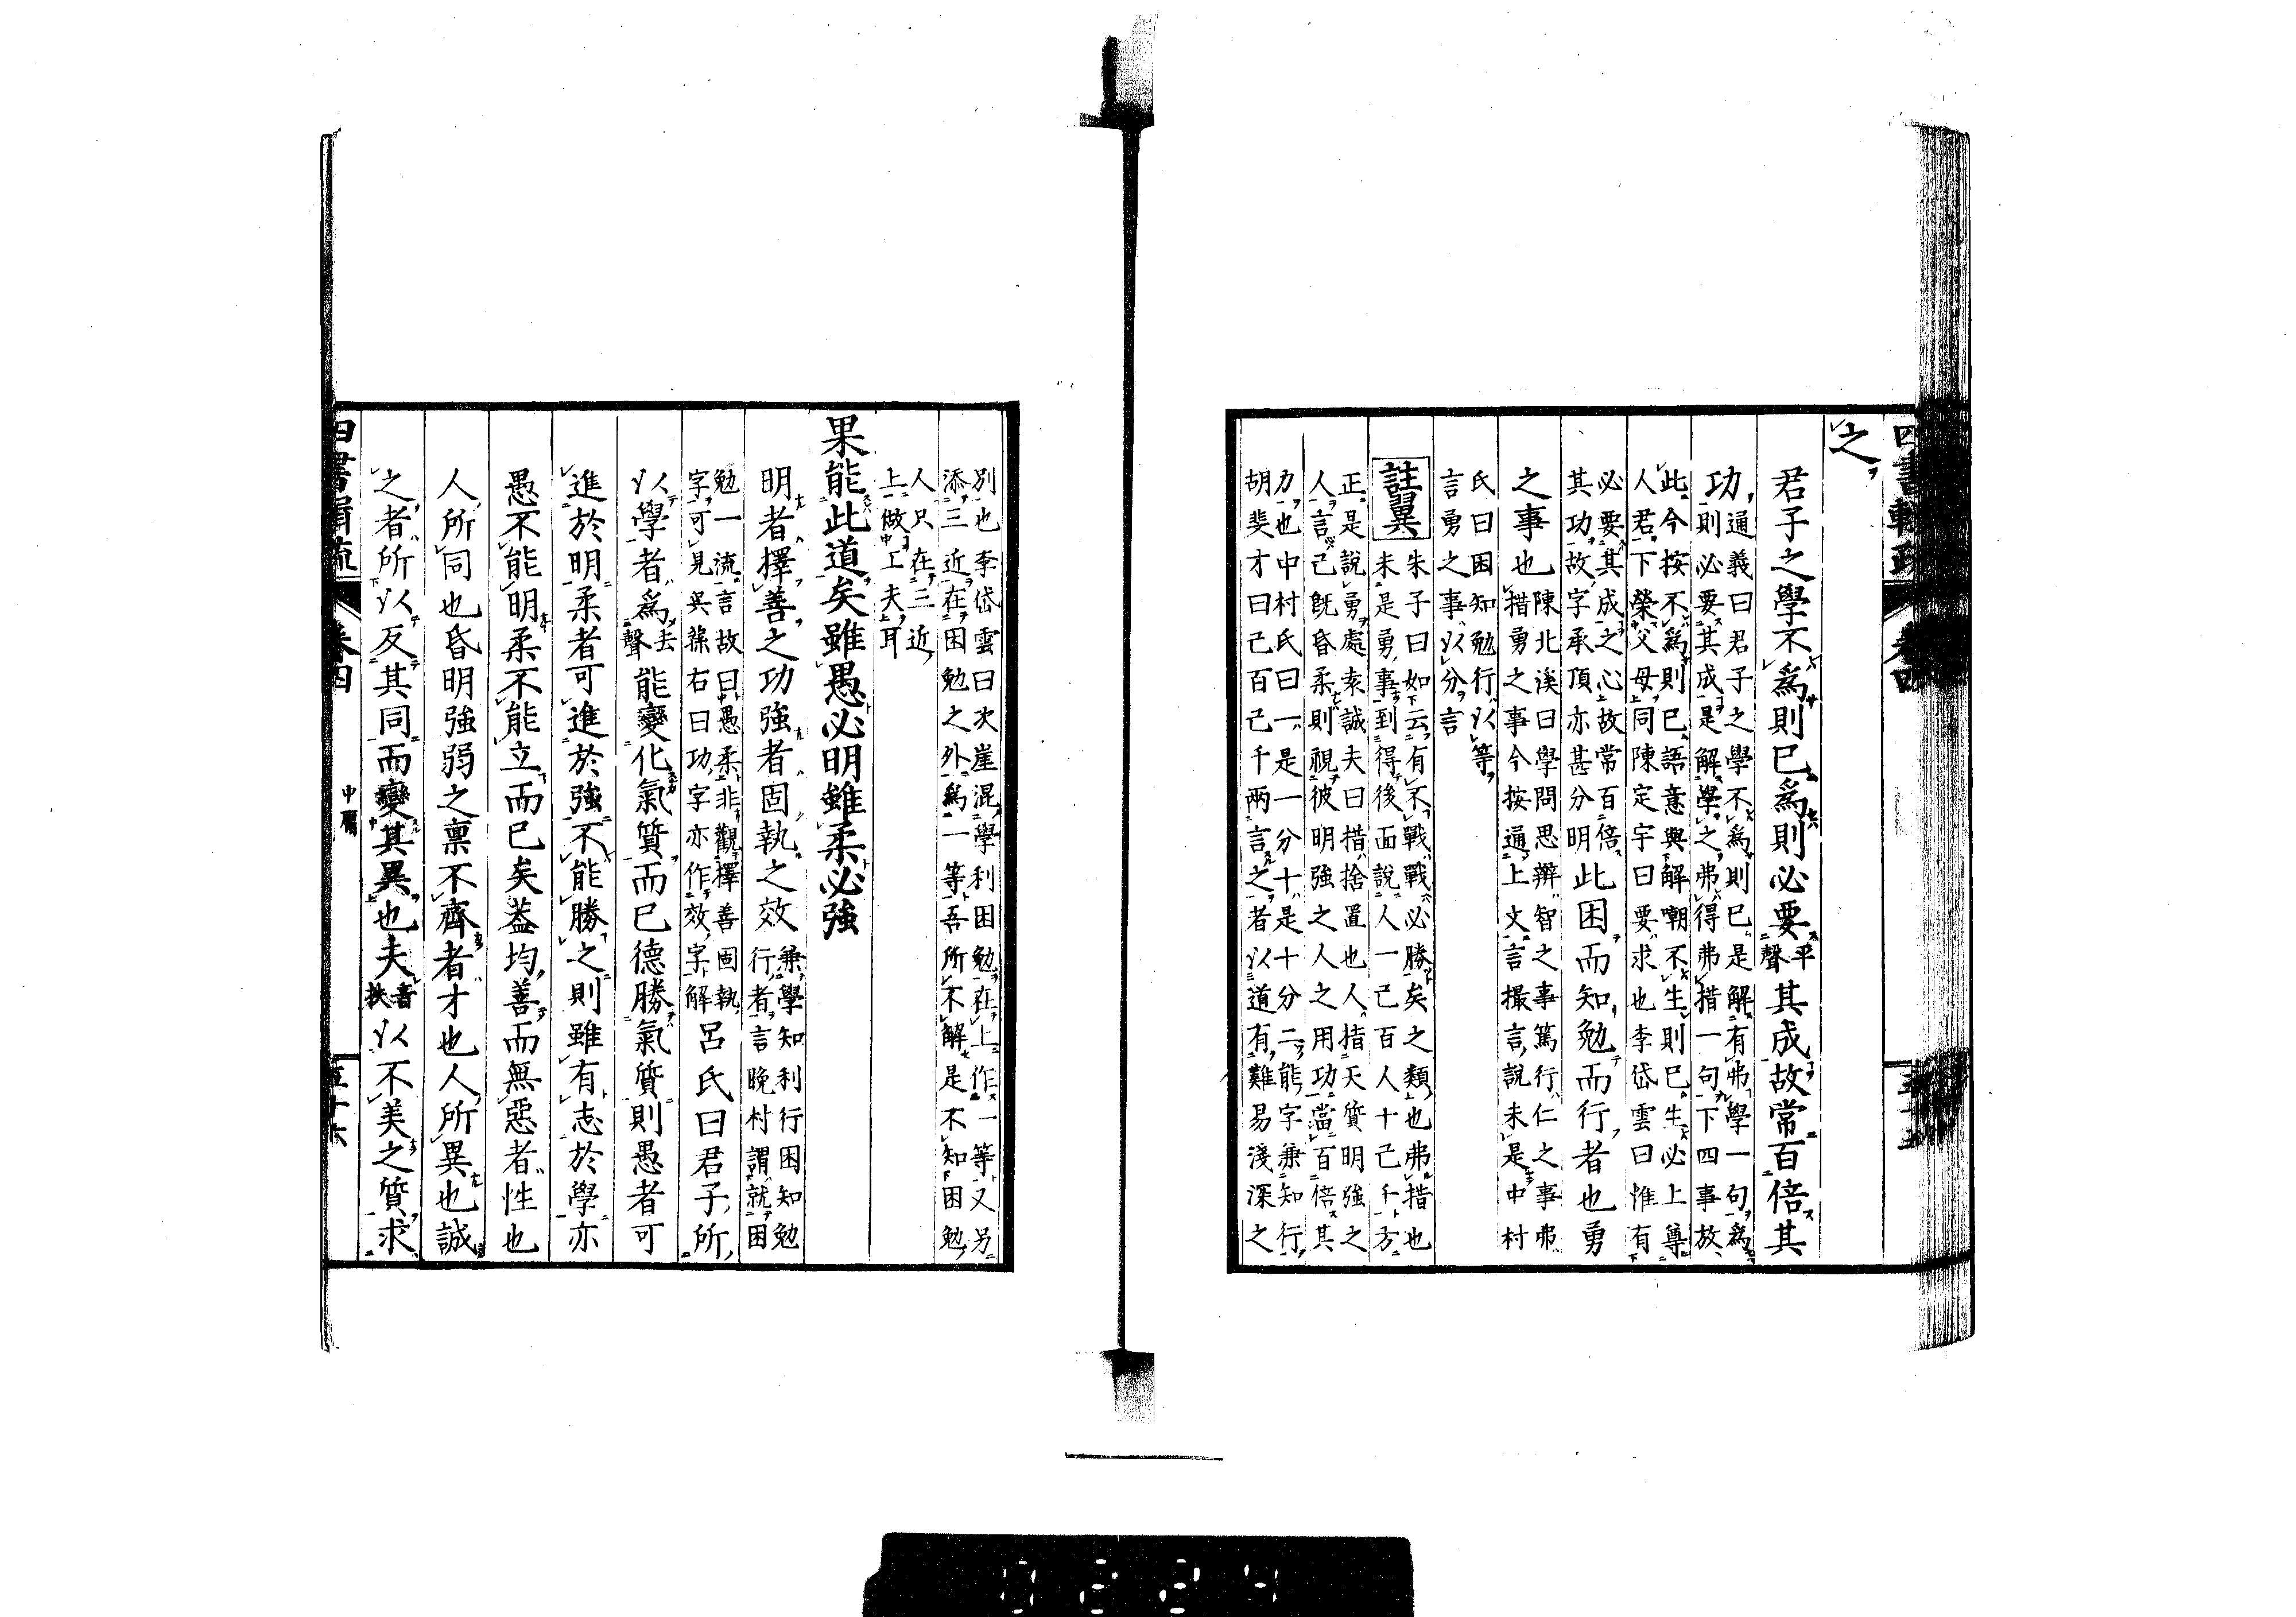 之
君子之學不爲則已爲則必要平聲其成故常百倍其
功通義曰君子之學不爲則已是解有弗學一句爲
則必要其成是解學之弗得弗措一句下四事放
此今按不爲則已語意與解嘲不生則已生必上尊
人君下榮父母同陳定宇曰要求也李岱雲曰惟有
必要其成之心故常百倍
其功故字承頂亦甚分明此困而知勉而行者也勇
之事也陳北溪曰學問思辨智之事篤行仁之事弗
措勇之事今按通上文言撮言說未是中村
氏曰困知勉行以等
言勇之事以分言
註翼朱子曰如云有不戰戰必勝矣之類也弗措也
未是勇事到得後面說人一己百人十己千方
正是說勇處袁誠夫曰措捨置也人指天質明強之
人言己旣昏柔則視彼明強之人之用功當百倍其
力也中村氏曰一是一分十是十分二能字兼知行
胡斐才曰己百己千兩言之者以道有難易淺深之
別也李岱雲曰次崖混學利困勉在上作一等又另
添三近在困勉之外爲一等吾所不解是不知困勉
人只在三近
上做工夫耳
果能此道矣雖愚必明雖柔必強
明者擇善之功強者固執之效兼學知利行困知勉
行者言晚村謂就困
勉一流言故曰愚柔非觀擇善固執
字可見吳蓀右曰功字亦作效字解呂氏曰君子所
以學者爲去聲能變化氣質而已德勝氣質則愚者可
進於明柔者可進於強不能勝之則雖有志於學亦
愚不能明柔不能立而已矣蓋均善而無惡者性也
人所同也昏明強弱之稟不齊者才也人所異也誠
之者所以反其同而變其異也夫音扶以不美之質求
卷四
中庸
五十六